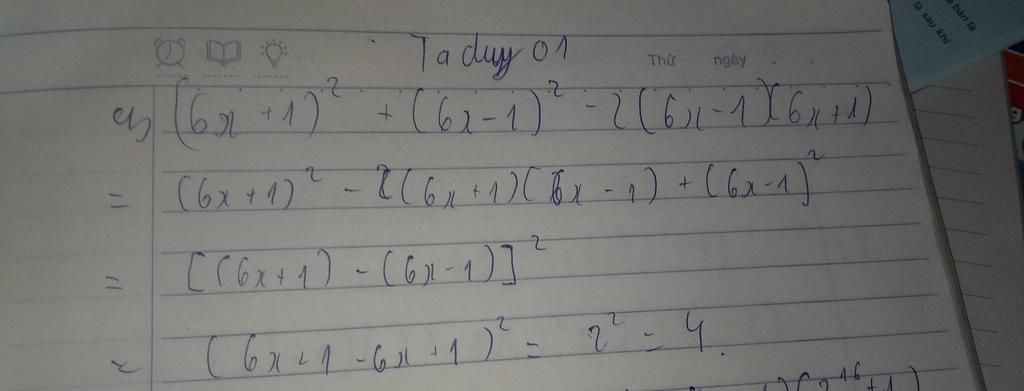 Ta duy 01
Thứ ngày
là bàn là
là sau khi
a) (6x+1)² + (6x-1)² - 2(6x-1)(6x+1)
= (6x+1)² - 2(6x+1)(6x-1) + (6x-1]²
= [(6x+1) - (6x-1)]²
= (6x+1-6x+1)² = 2² = 4.